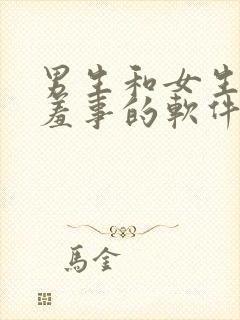 男生和女生
羞事的軟件
馬金